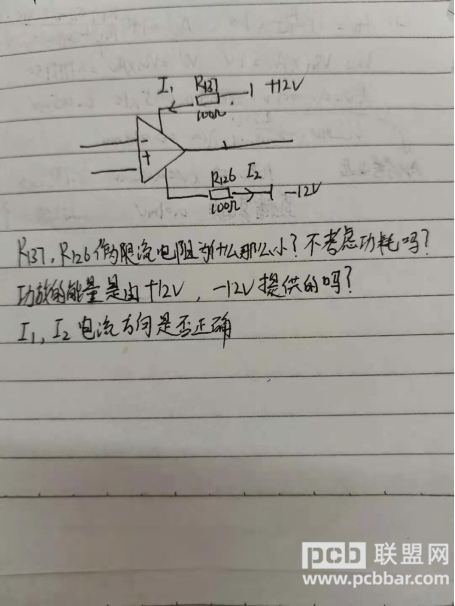 I₁ R137 +12V
100Ω
-
+
R126 I₂
100Ω -12V
R137, R126作为限流电阻为什么那么小? 不考虑功耗吗?
功放的能量是由+12V, -12V提供的吗?
I₁, I₂电流方向是否正确
pcb联盟网
www.pcbbar.com